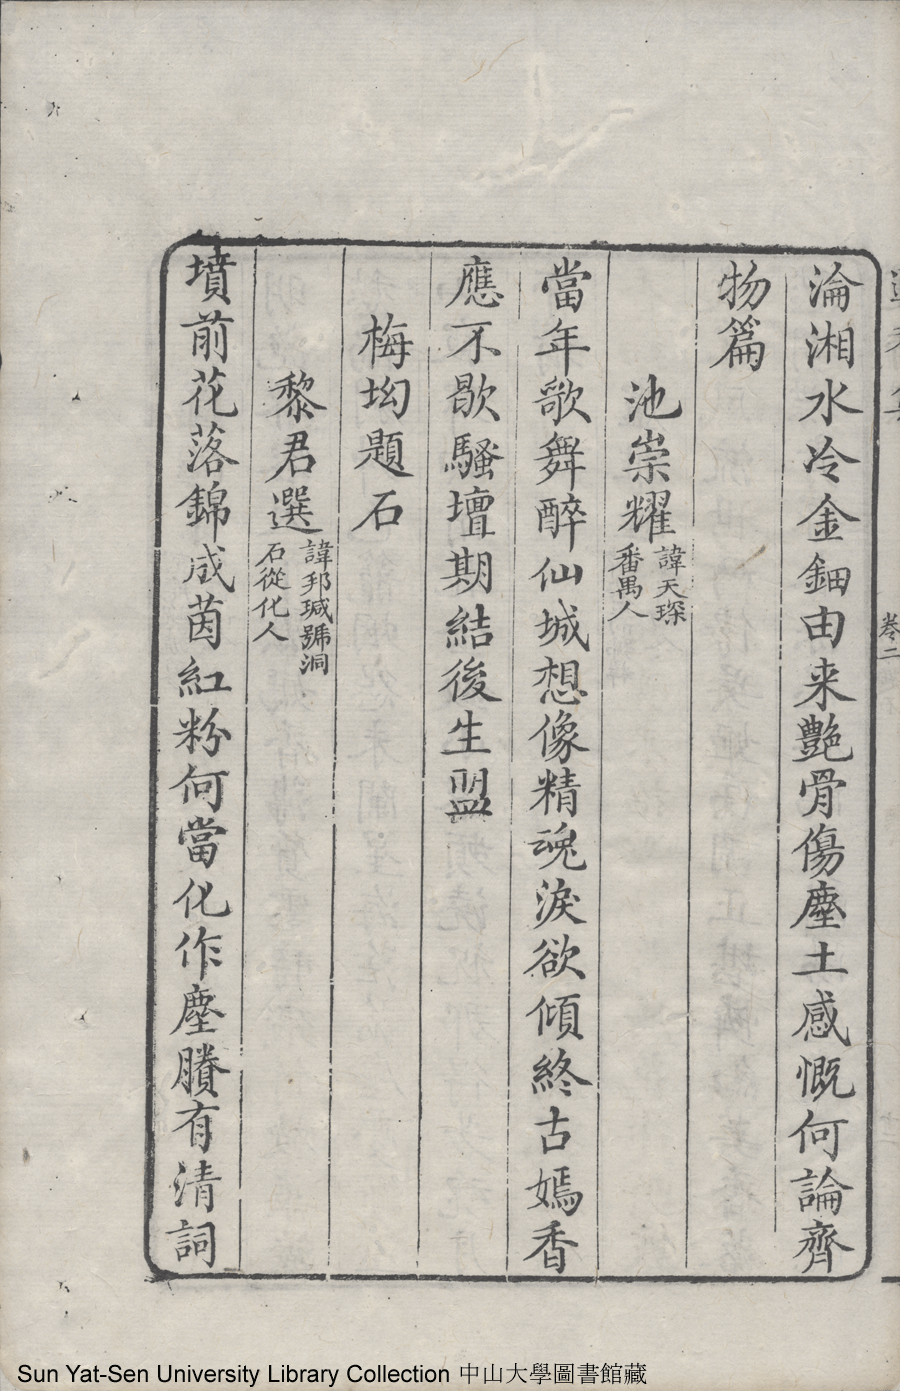 卷二
淪湘水冷金鈿由来艶骨傷塵土感慨何論齊
物篇
池崇耀
諱天琛
番禺人
當年歌舞醉仙城想像精魂淚欲傾終古嫣香
應不歇騷壇期結後生盟
梅坳題石
黎君選
諱邦瑊號洞
石從化人
墳前花落錦成茵紅粉何當化作塵賸有清詞
Sun Yat-Sen University Library Collection 中山大學圖書館藏